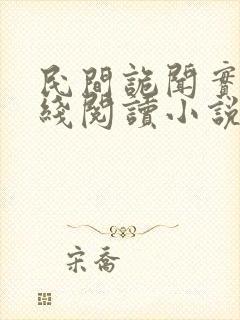 民間詭聞實
綫閱讀小說
宋喬